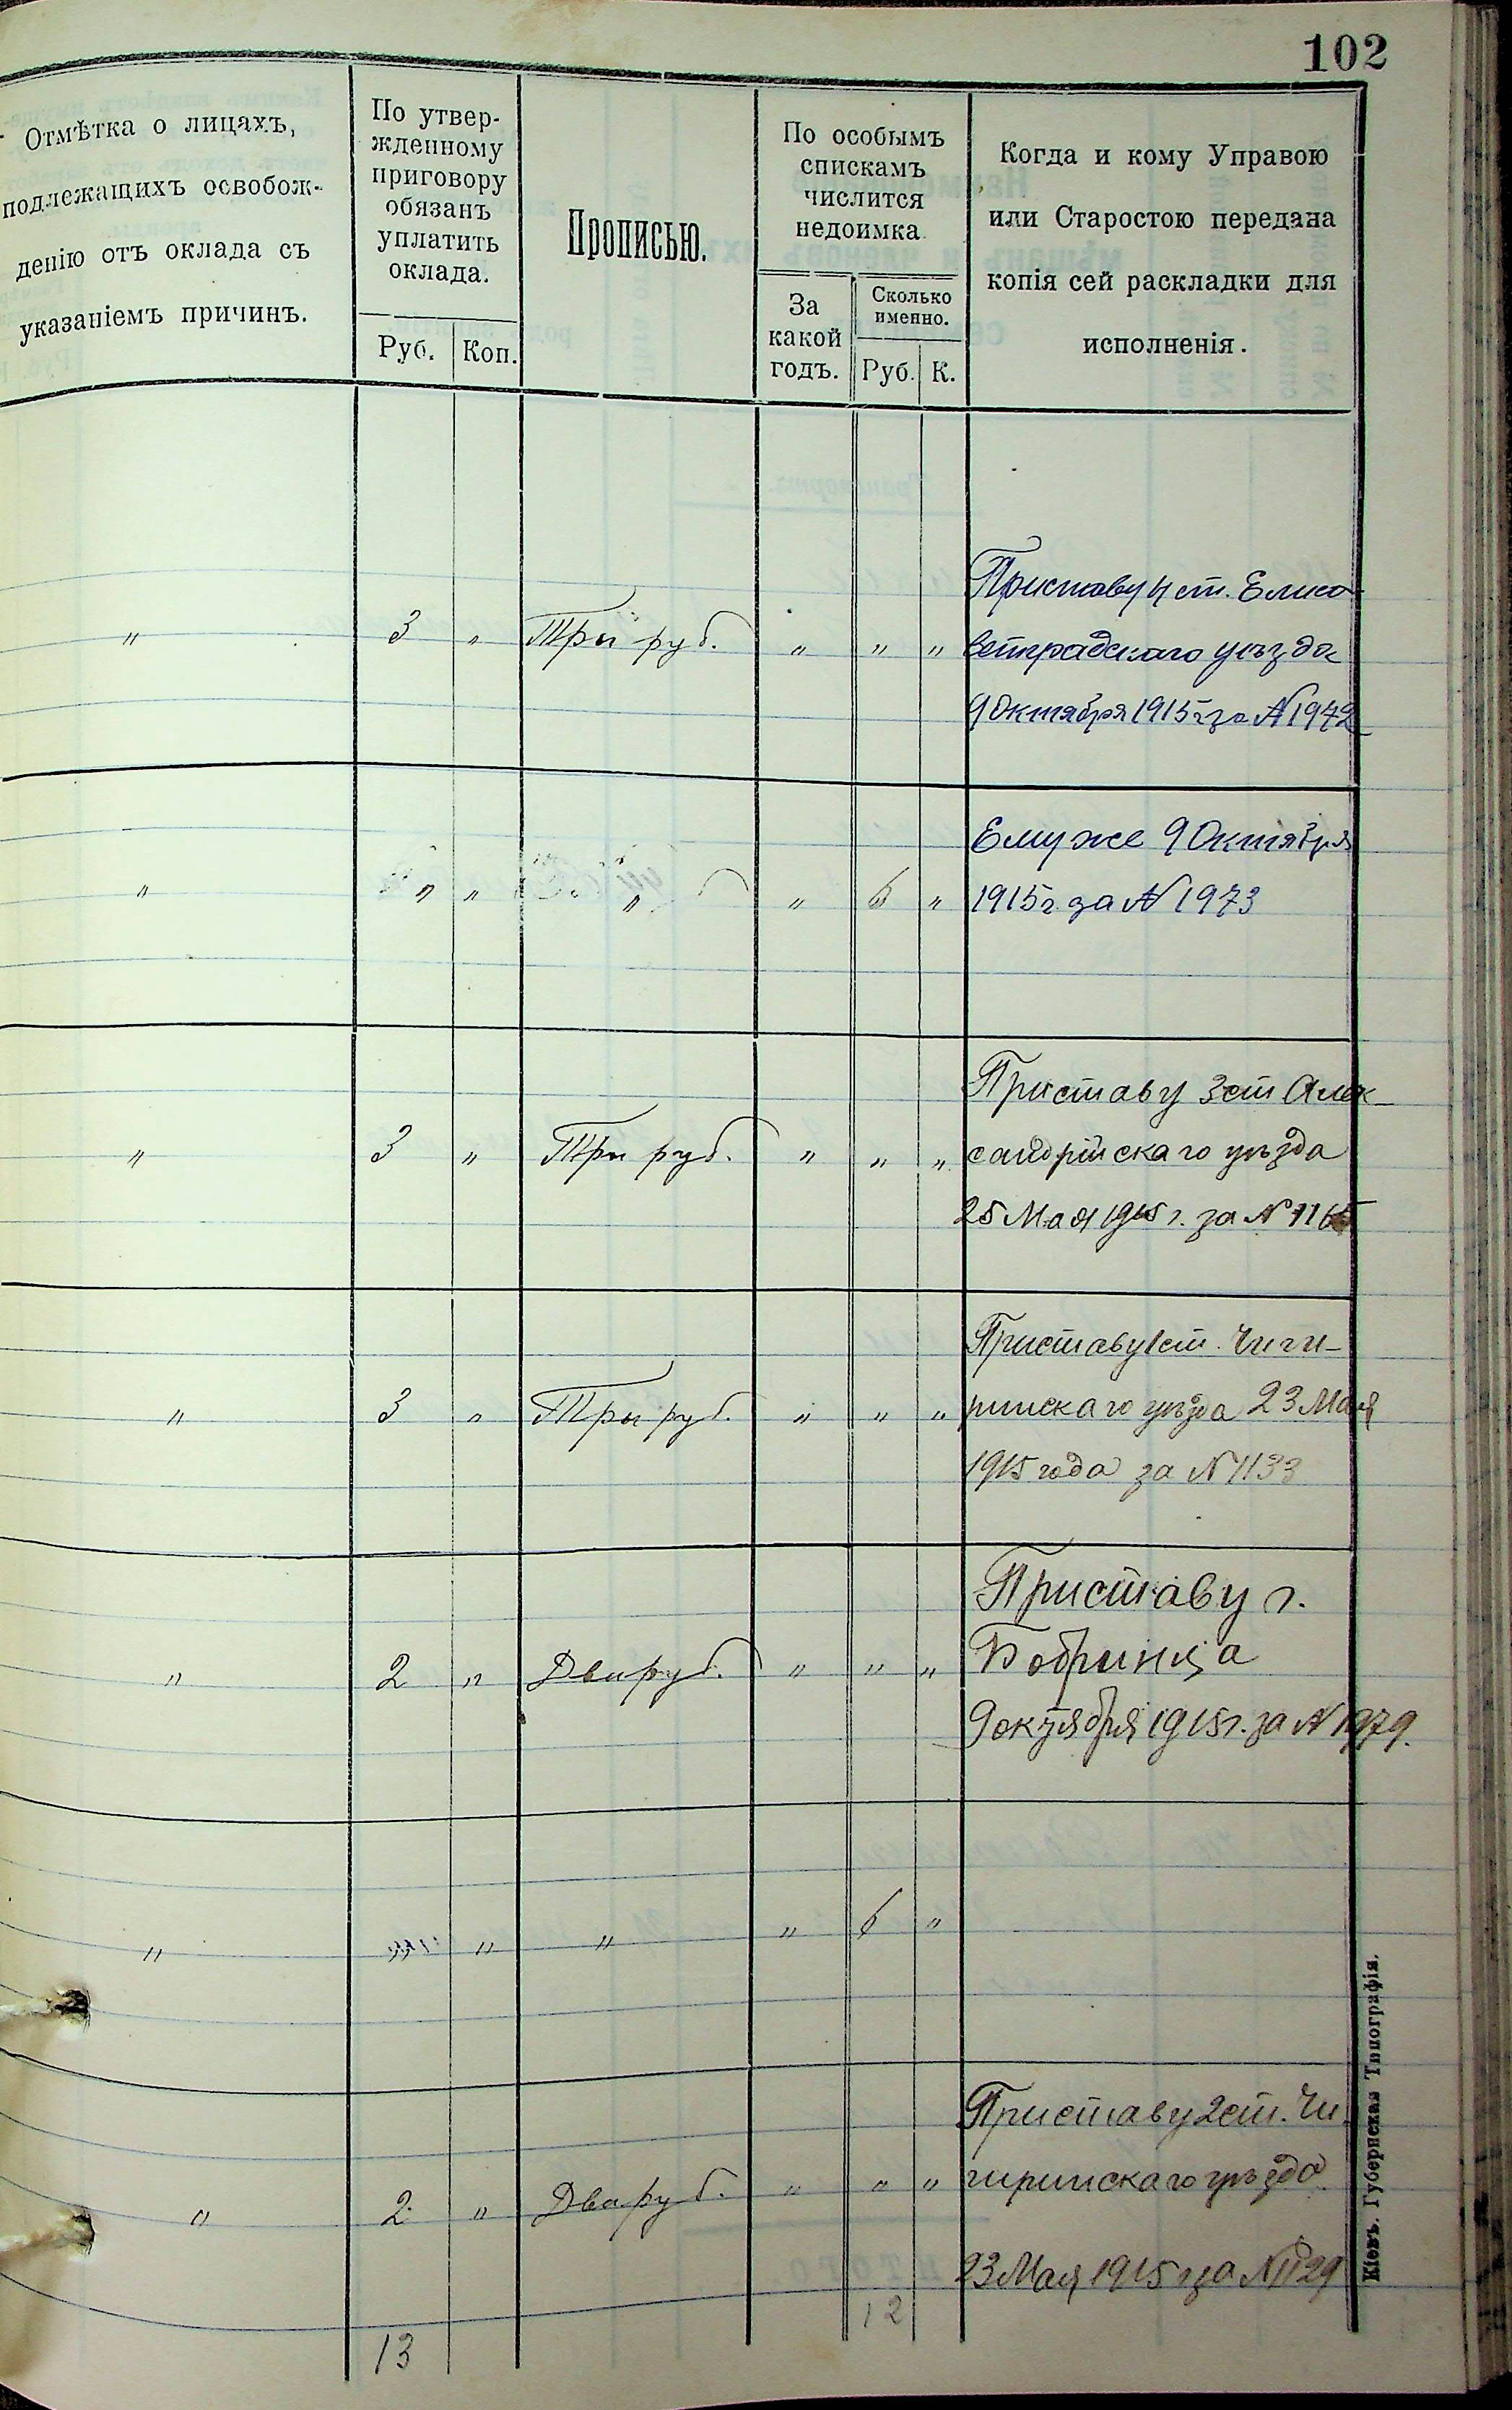 102
Отмѣтка о лицахъ,
подлежащихъ освобож-
денію отъ оклада съ
указаніемъ причинъ.
По утвер-
жденному
приговору
обязанъ
уплатить
оклада.
Руб.
Коп.
Прописью.
По особымъ
спискамъ
числится
недоимка
За
какой
годъ.
Сколько
именно.
Руб.
К.
Когда и кому Управою
или Старостою передана
копія сей раскладки для
исполненія.
" 3 " Три руб. " " "
Приставу 4 ст. Елиса-
ветградскаго уѣзда
9 Октября 1915 г за № 1972
" " " " " 6 "
Ему же 9 Октября
1915 г. за № 1973
" 3 " Три руб. " " "
Приставу 3 ст Алек-
сандрійскаго уѣзда
25 Мая 1915 г. за № 1165
" 3 " Три руб. " " "
Приставу 1 ст. Чиги-
ринскаго уѣзда 23 Мая
1915 года за № 1133
" 2 " Два руб. " " "
Приставу г.
Бобринца
9 октября 1915 г. за № 1979.
" " " " " 6 "
" 2 " Два руб. " " "
Приставу 2 ст. Чи-
гиринскаго уѣзда
23 Мая 1915 г за № 1129
13
12
Кіевъ. Губернская Типографія.